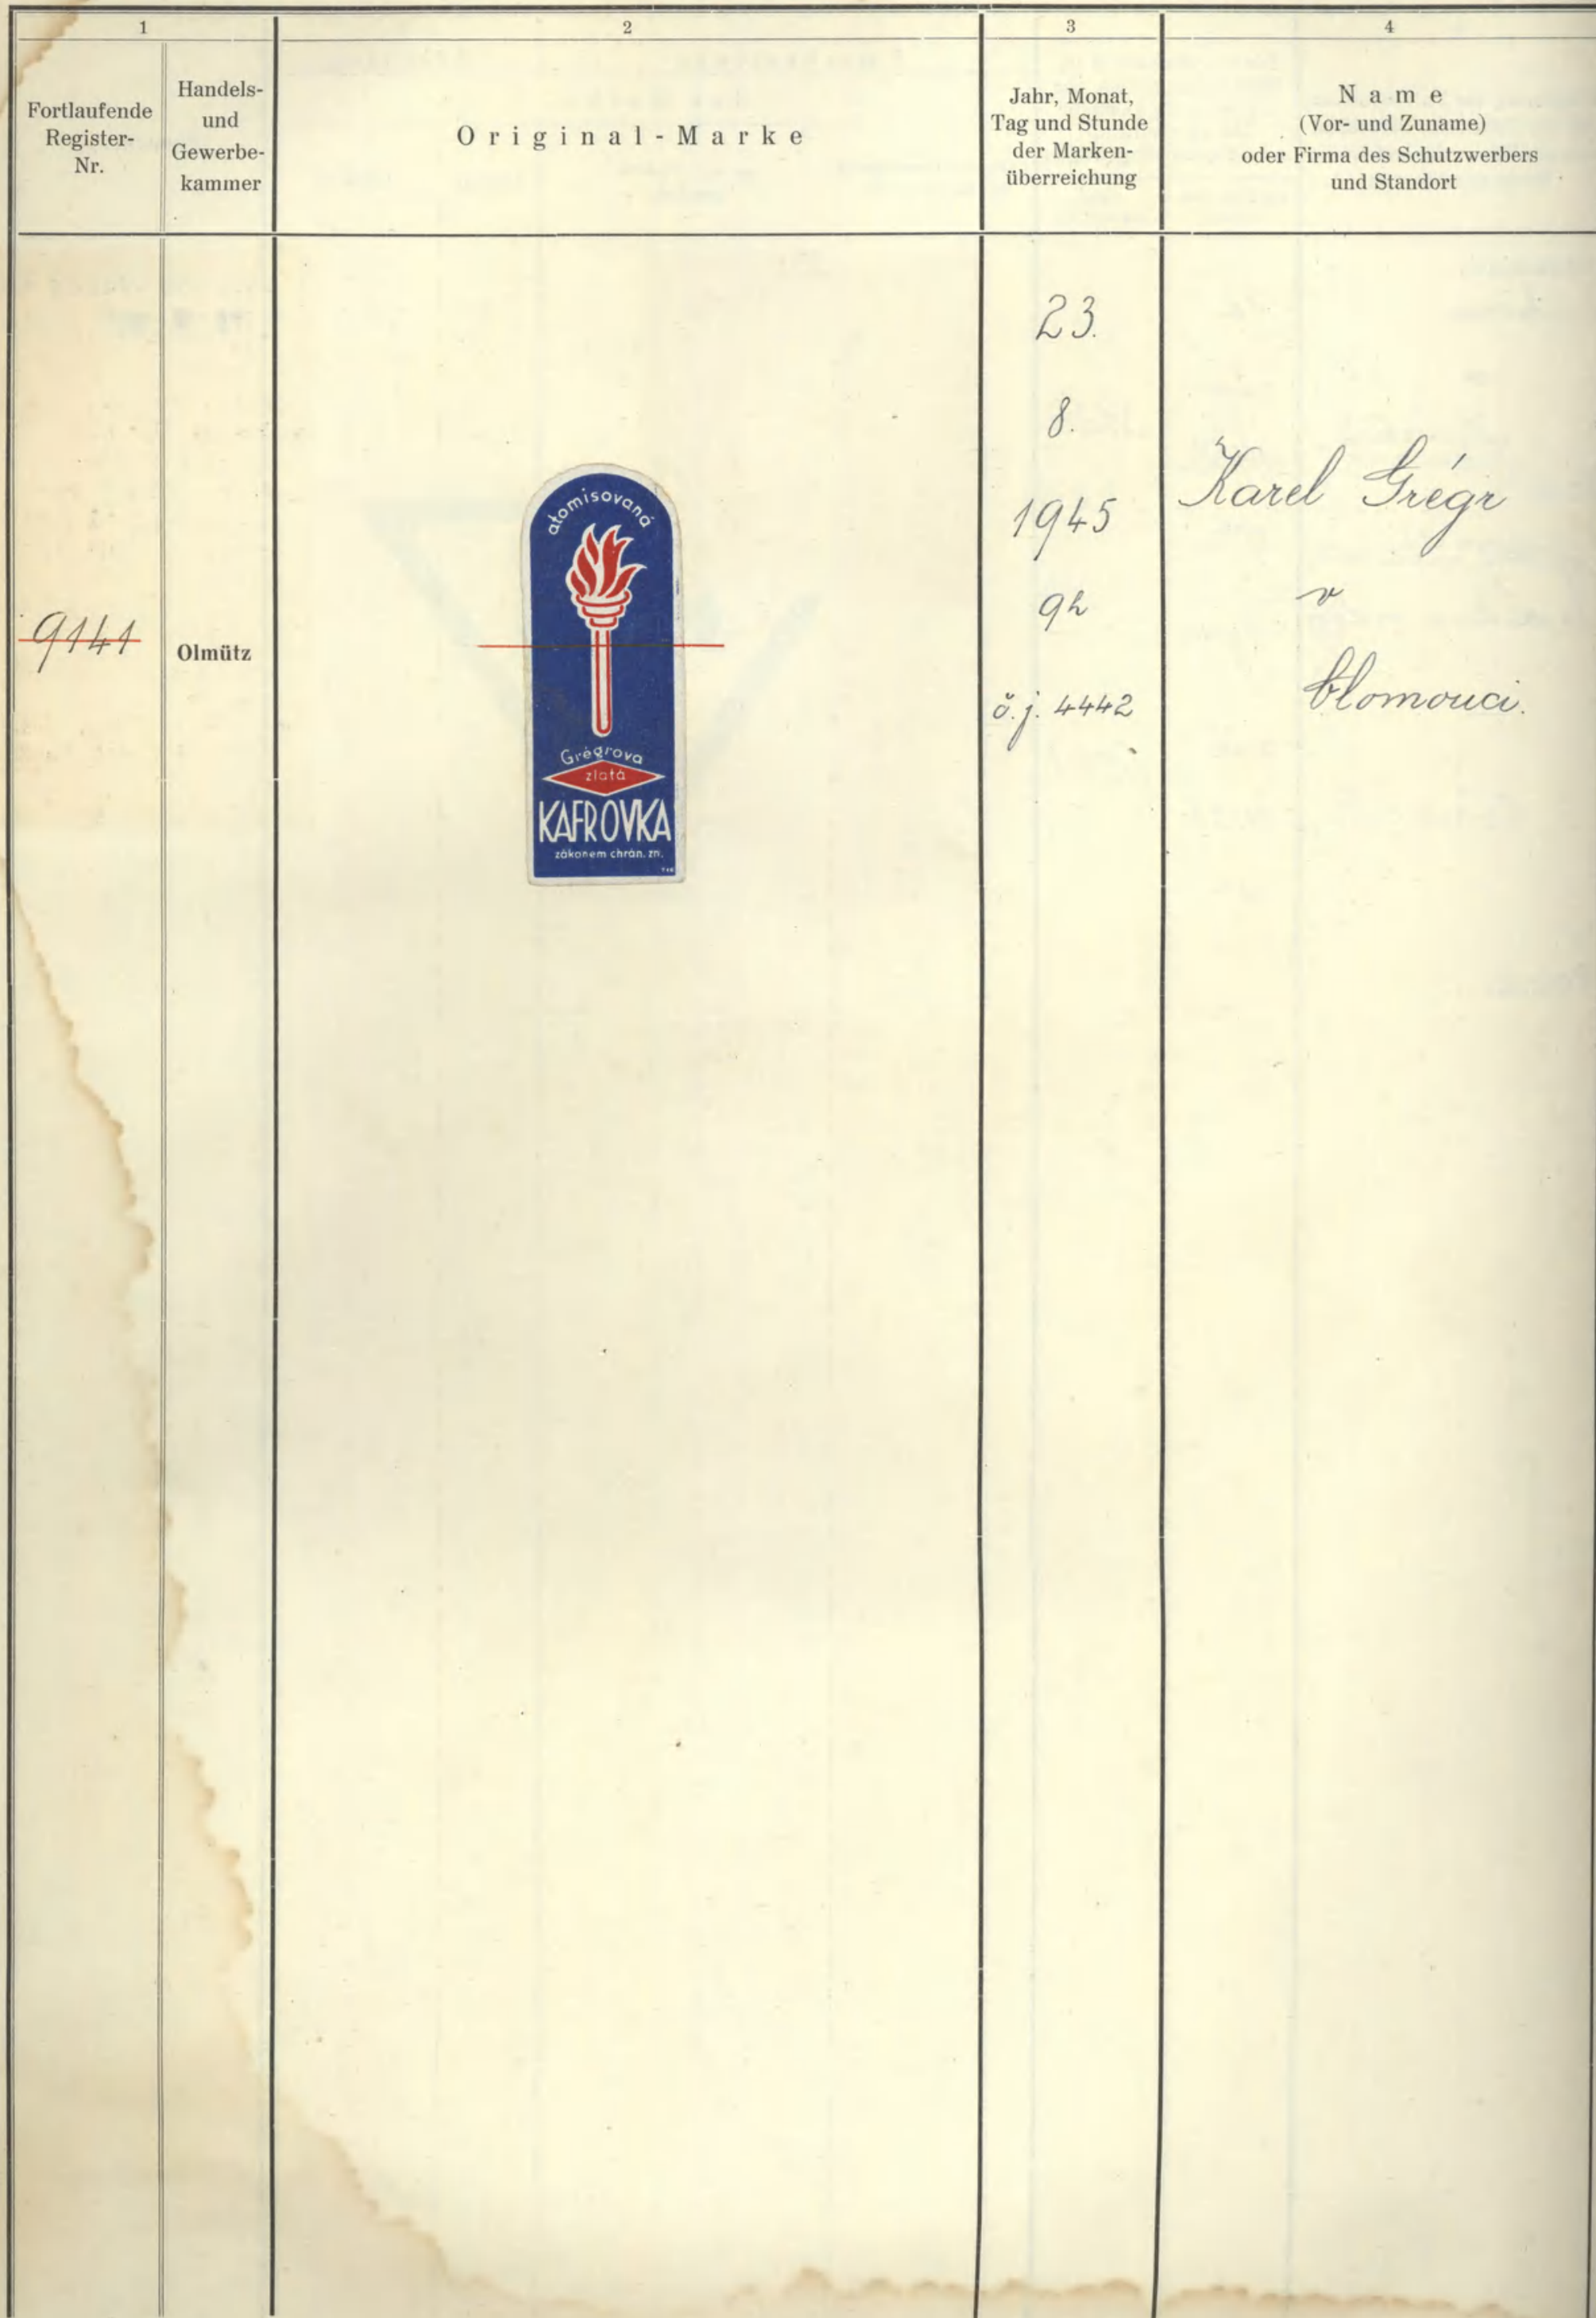 1
2
3
4
Fortlaufende
Register-
Nr.
Handels-
und
Gewerbe-
kammer
Original-Marke
Jahr, Monat,
Tag und Stunde
der Marken-
überreichung
Name
(Vor- und Zuname)
oder Firma des Schutzwerbers
und Standort
9141
Olmütz
atomisovaná
Grégrova
zlatá
KAFROVKA
zákonem chrán. zn.
23.
8.
1945
9h
č.j. 4442
Karel Grégr
v
Olomouci.